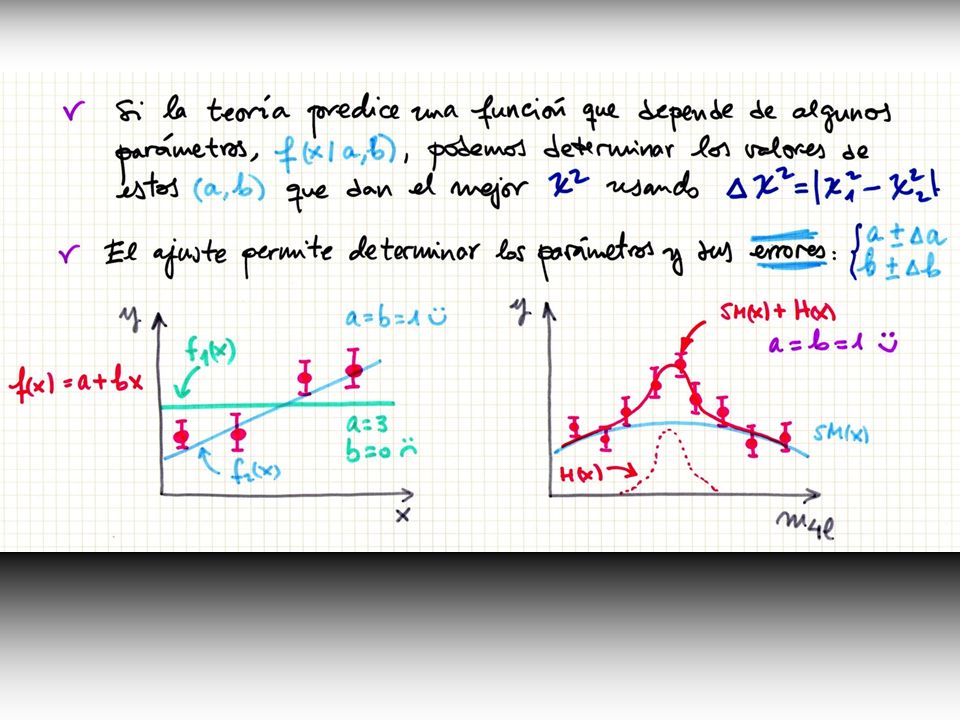 ✓ Si la teoría predice una función que depende de algunos
parámetros, f(x|a,b), podemos determinar los valores de
estos (a,b) que dan el mejor χ² usando Δχ²=|χ₁²-χ₂²|
✓ El ajuste permite determinar los parámetros y sus errores: { a ± Δa
b ± Δb
y
a=b=1 Ü
f₁(x)
f(x) = a+bx
a=3
b=0
f₂(x)
x
y
SM(x) + H(x)
a=b=1 Ü
SM(x)
H(x)
m₄ℓ